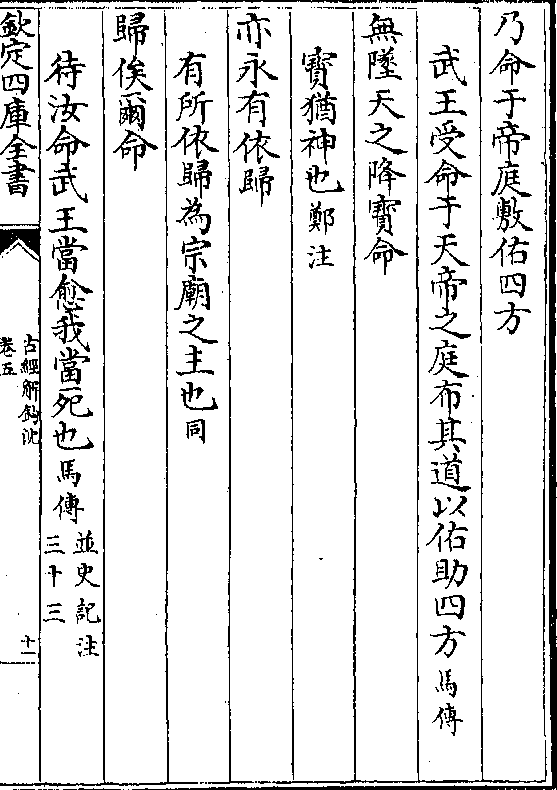 乃命于帝庭敷佑四方
武王受命于天帝之庭布其道以佑助四方馬傳
無墜天之降寳命
寳猶神也鄭注
亦永有依歸
有所依歸為宗廟之主也同
歸俟爾命
待汝命武王當愈我當死也馬傳並史記注三十三
欽定四庫全書
古經解鈎沈
卷五
十一